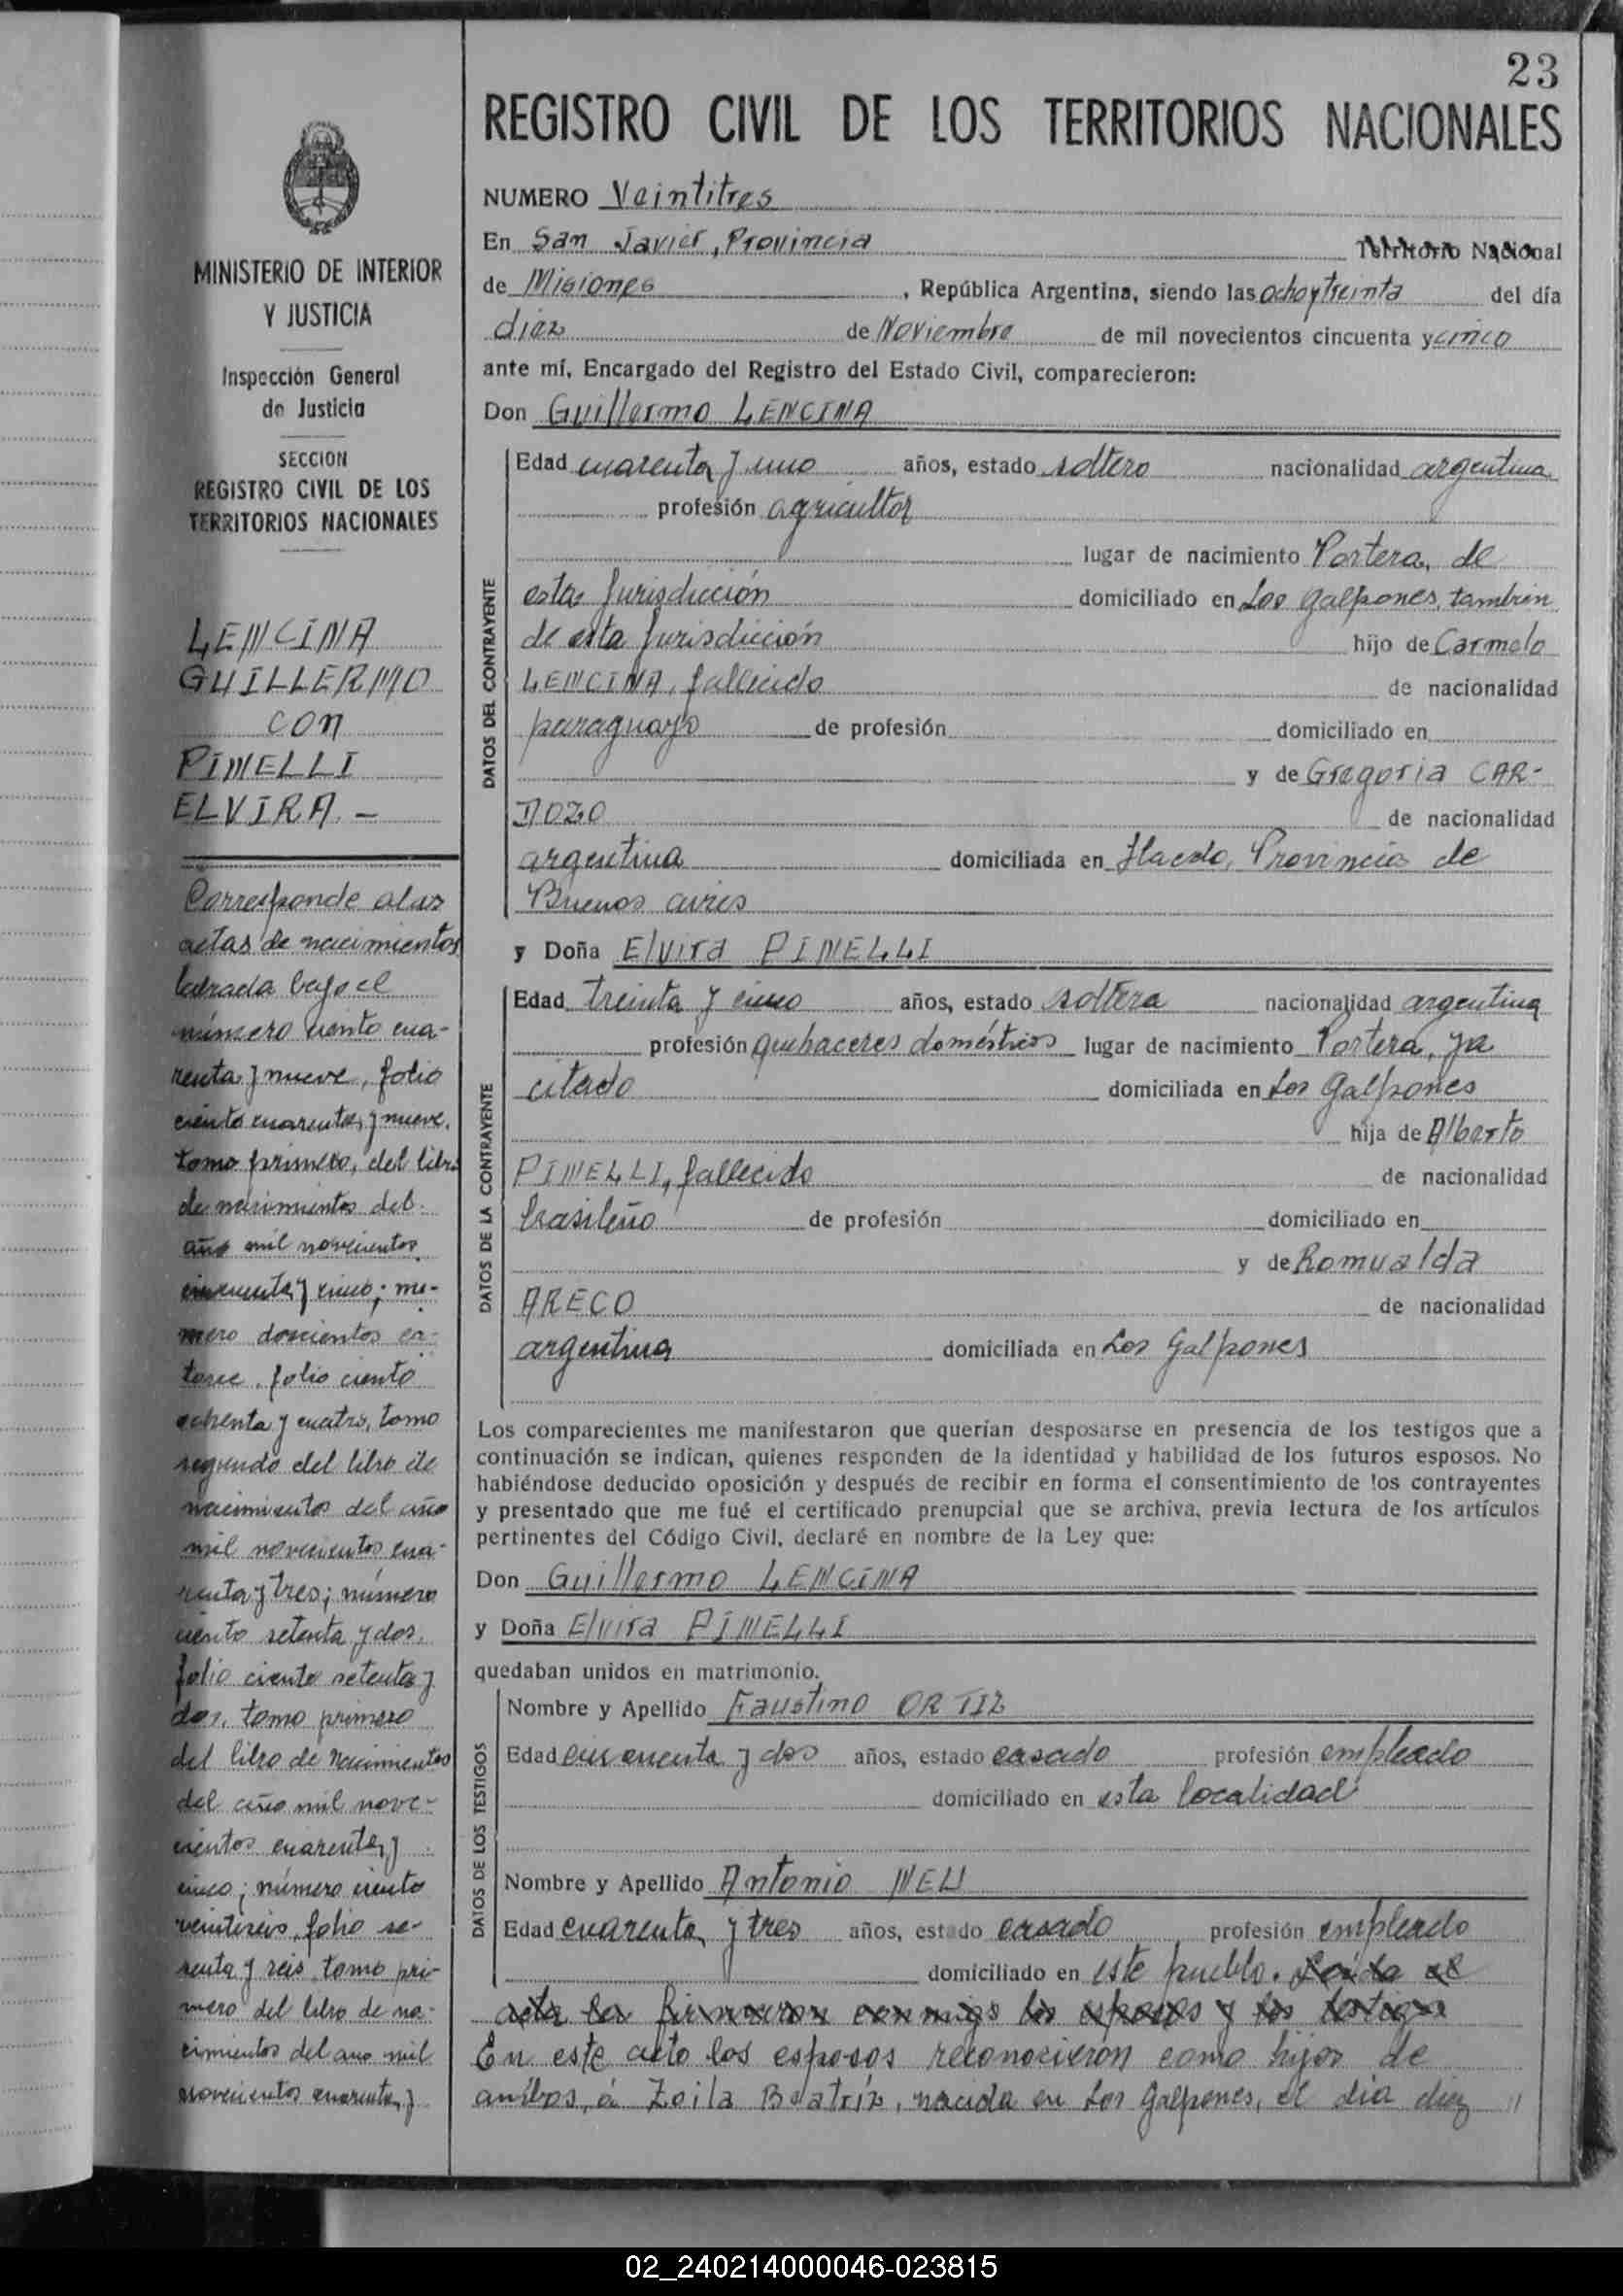 23
REGISTRO CIVIL DE LOS TERRITORIOS NACIONALES
MINISTERIO DE INTERIOR
Y JUSTICIA
Inspección General
de Justicia
SECCION
REGISTRO CIVIL DE LOS
TERRITORIOS NACIONALES
LENCINA
GUILLERMO
con
PINELLI
ELVIRA. -
Corresponde a las
actas de nacimientos
labrada bajo el
número ciento cua-
renta y nueve, folio
ciento cuarenta y nueve,
tomo primero, del libro
de nacimientos del
año mil novecientos
cincuenta y cinco; nú-
mero doscientos ca-
torce, folio ciento
ochenta y cuatro, tomo
segundo del libro de
nacimientos del año
mil novecientos cua-
renta y tres; número
ciento setenta y dos,
folio ciento setenta y
dos, tomo primero
del libro de Nacimientos
del año mil nove-
cientos cuarenta y
cinco; número ciento
veintiseis, folio se-
senta y seis, tomo pri-
mero del libro de na-
cimientos del año mil
novecientos cuarenta y
NUMERO Veintitres
En San Javier, Provincia Territorio Nacional
de Misiones, República Argentina, siendo las ocho y treinta del día
diez de Noviembre de mil novecientos cincuenta y cinco
ante mí, Encargado del Registro del Estado Civil, comparecieron:
Don Guillermo LENCINA
DATOS DEL CONTRAYENTE
Edad cuarenta y uno años, estado soltero nacionalidad argentina
profesión agricultor
lugar de nacimiento Portera, de
esta Jurisdicción domiciliado en Los Galpones, también
de esta Jurisdicción hijo de Carmelo
LENCINA, fallecido de nacionalidad
paraguayo de profesión domiciliado en
y de Gregoria CAR-
DOZO de nacionalidad
argentina domiciliada en Haedo, Provincia de
Buenos aires
y Doña Elvira PINELLI
DATOS DE LA CONTRAYENTE
Edad treinta y cinco años, estado soltera nacionalidad argentina
profesión quehaceres domésticos lugar de nacimiento Portera, ya
citado domiciliada en Los Galpones
hija de Alberto
PINELLI, fallecido de nacionalidad
brasileño de profesión domiciliado en
y de Romualda
ARECO de nacionalidad
argentina domiciliada en Los Galpones
Los comparecientes me manifestaron que querían desposarse en presencia de los testigos que a
continuación se indican, quienes responden de la identidad y habilidad de los futuros esposos. No
habiéndose deducido oposición y después de recibir en forma el consentimiento de los contrayentes
y presentado que me fué el certificado prenupcial que se archiva, previa lectura de los artículos
pertinentes del Código Civil, declaré en nombre de la Ley que:
Don Guillermo LENCINA
y Doña Elvira PINELLI
quedaban unidos en matrimonio.
DATOS DE LOS TESTIGOS
Nombre y Apellido Faustino ORTIZ
Edad cincuenta y dos años, estado casado profesión empleado
domiciliado en esta localidad
Nombre y Apellido Antonio NEU
Edad cuarenta y tres años, estado casado profesión empleado
domiciliado en este pueblo. Leída el
acta la firmaron conmigo los esposos y los testigos
En este acto los esposos reconocieron como hijos de
ambos, á Zoila Beatríz, nacida en Los Galpones, el día diez //
02_240214000046-023815